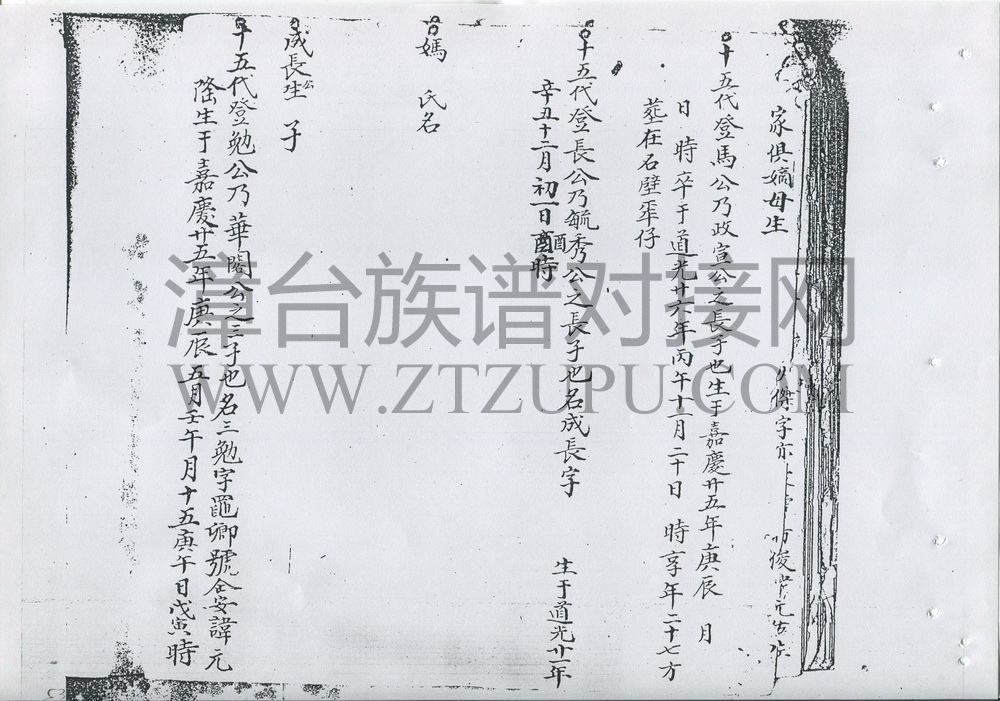 家俱嫡母生
十五代登馬公乃政宣公之長子也生于嘉慶廿五年庚辰 月
日 時卒于道光廿六年丙午十二月二十日 時享年二十七方
塟在石壁
十五代登長公乃毓秀公之長子也名成長字 生于道光廿一年
辛丑十二月初一日酉時
媽 氏名
成長公生 子
十五代登勉公乃華閣公之三子也名三勉字 卿號全安諱元
隆生于嘉慶廿五年庚辰五月壬午月十五庚午日戊寅時
漳台族谱对接网
WWW.ZTZUPU.COM